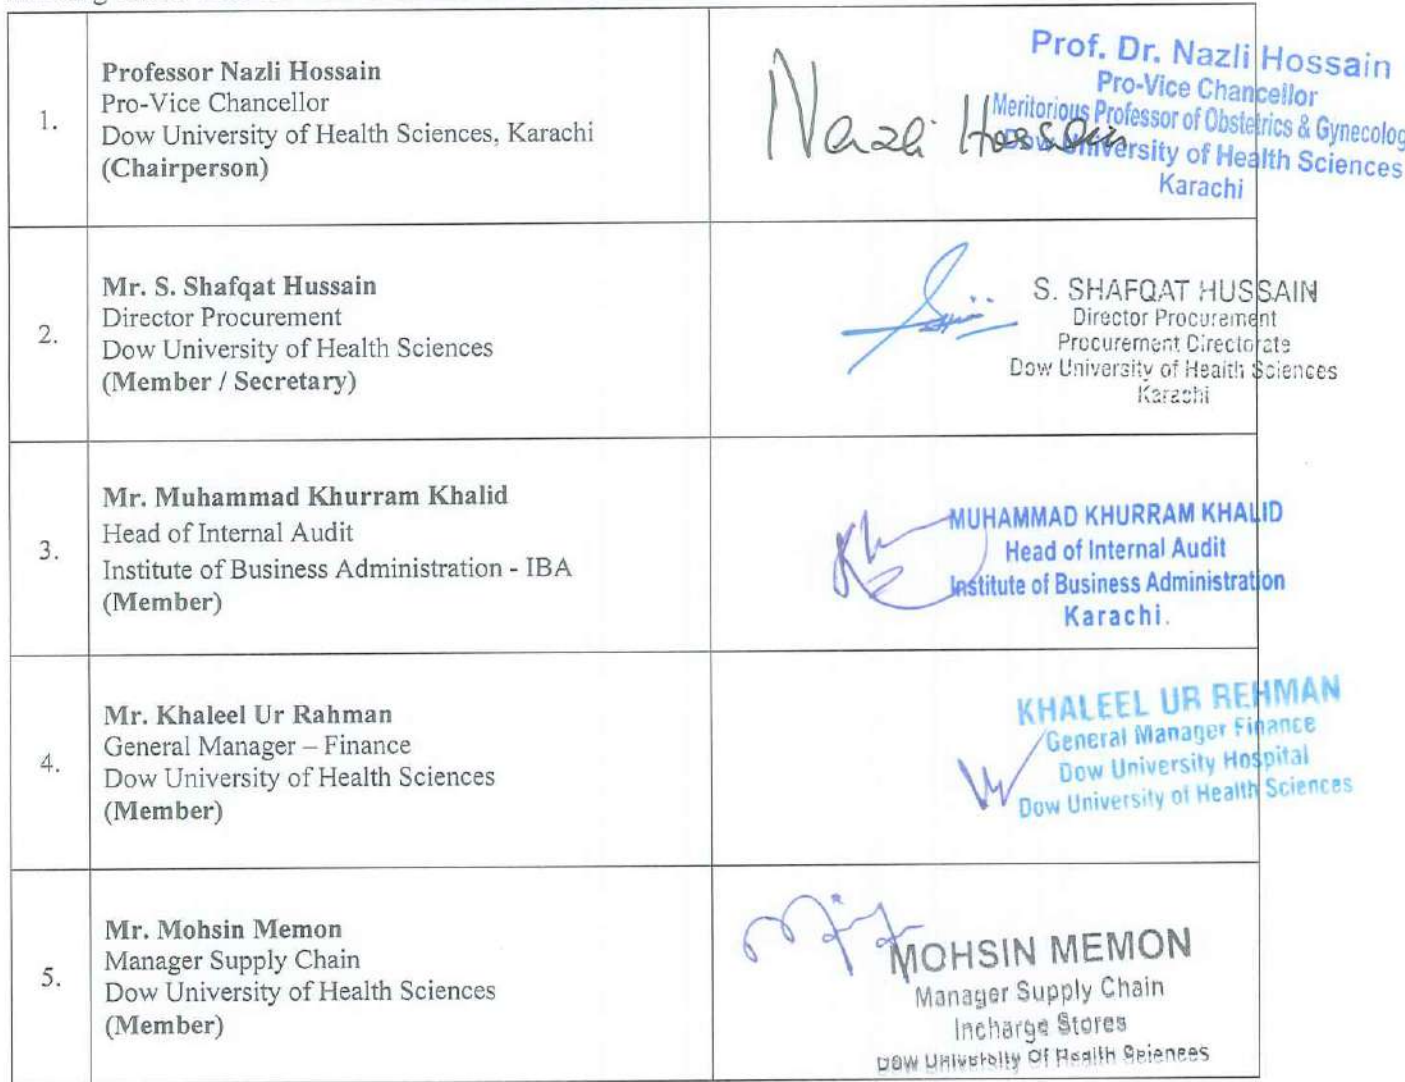 1.
Professor Nazli Hossain
Pro-Vice Chancellor
Dow University of Health Sciences, Karachi
(Chairperson)
Nazli Hossain
Prof. Dr. Nazli Hossain
Pro-Vice Chancellor
Meritorious Professor of Obstetrics & Gynecolog
Dow University of Health Sciences
Karachi
2.
Mr. S. Shafqat Hussain
Director Procurement
Dow University of Health Sciences
(Member / Secretary)
S. SHAFQAT HUSSAIN
Director Procurement
Procurement Directorate
Dow University of Health Sciences
Karachi
3.
Mr. Muhammad Khurram Khalid
Head of Internal Audit
Institute of Business Administration - IBA
(Member)
MUHAMMAD KHURRAM KHALID
Head of Internal Audit
Institute of Business Administration
Karachi.
4.
Mr. Khaleel Ur Rahman
General Manager – Finance
Dow University of Health Sciences
(Member)
KHALEEL UR REHMAN
General Manager Finance
Dow University Hospital
Dow University of Health Sciences
5.
Mr. Mohsin Memon
Manager Supply Chain
Dow University of Health Sciences
(Member)
MOHSIN MEMON
Manager Supply Chain
Incharge Stores
Dow University Of Health Sciences